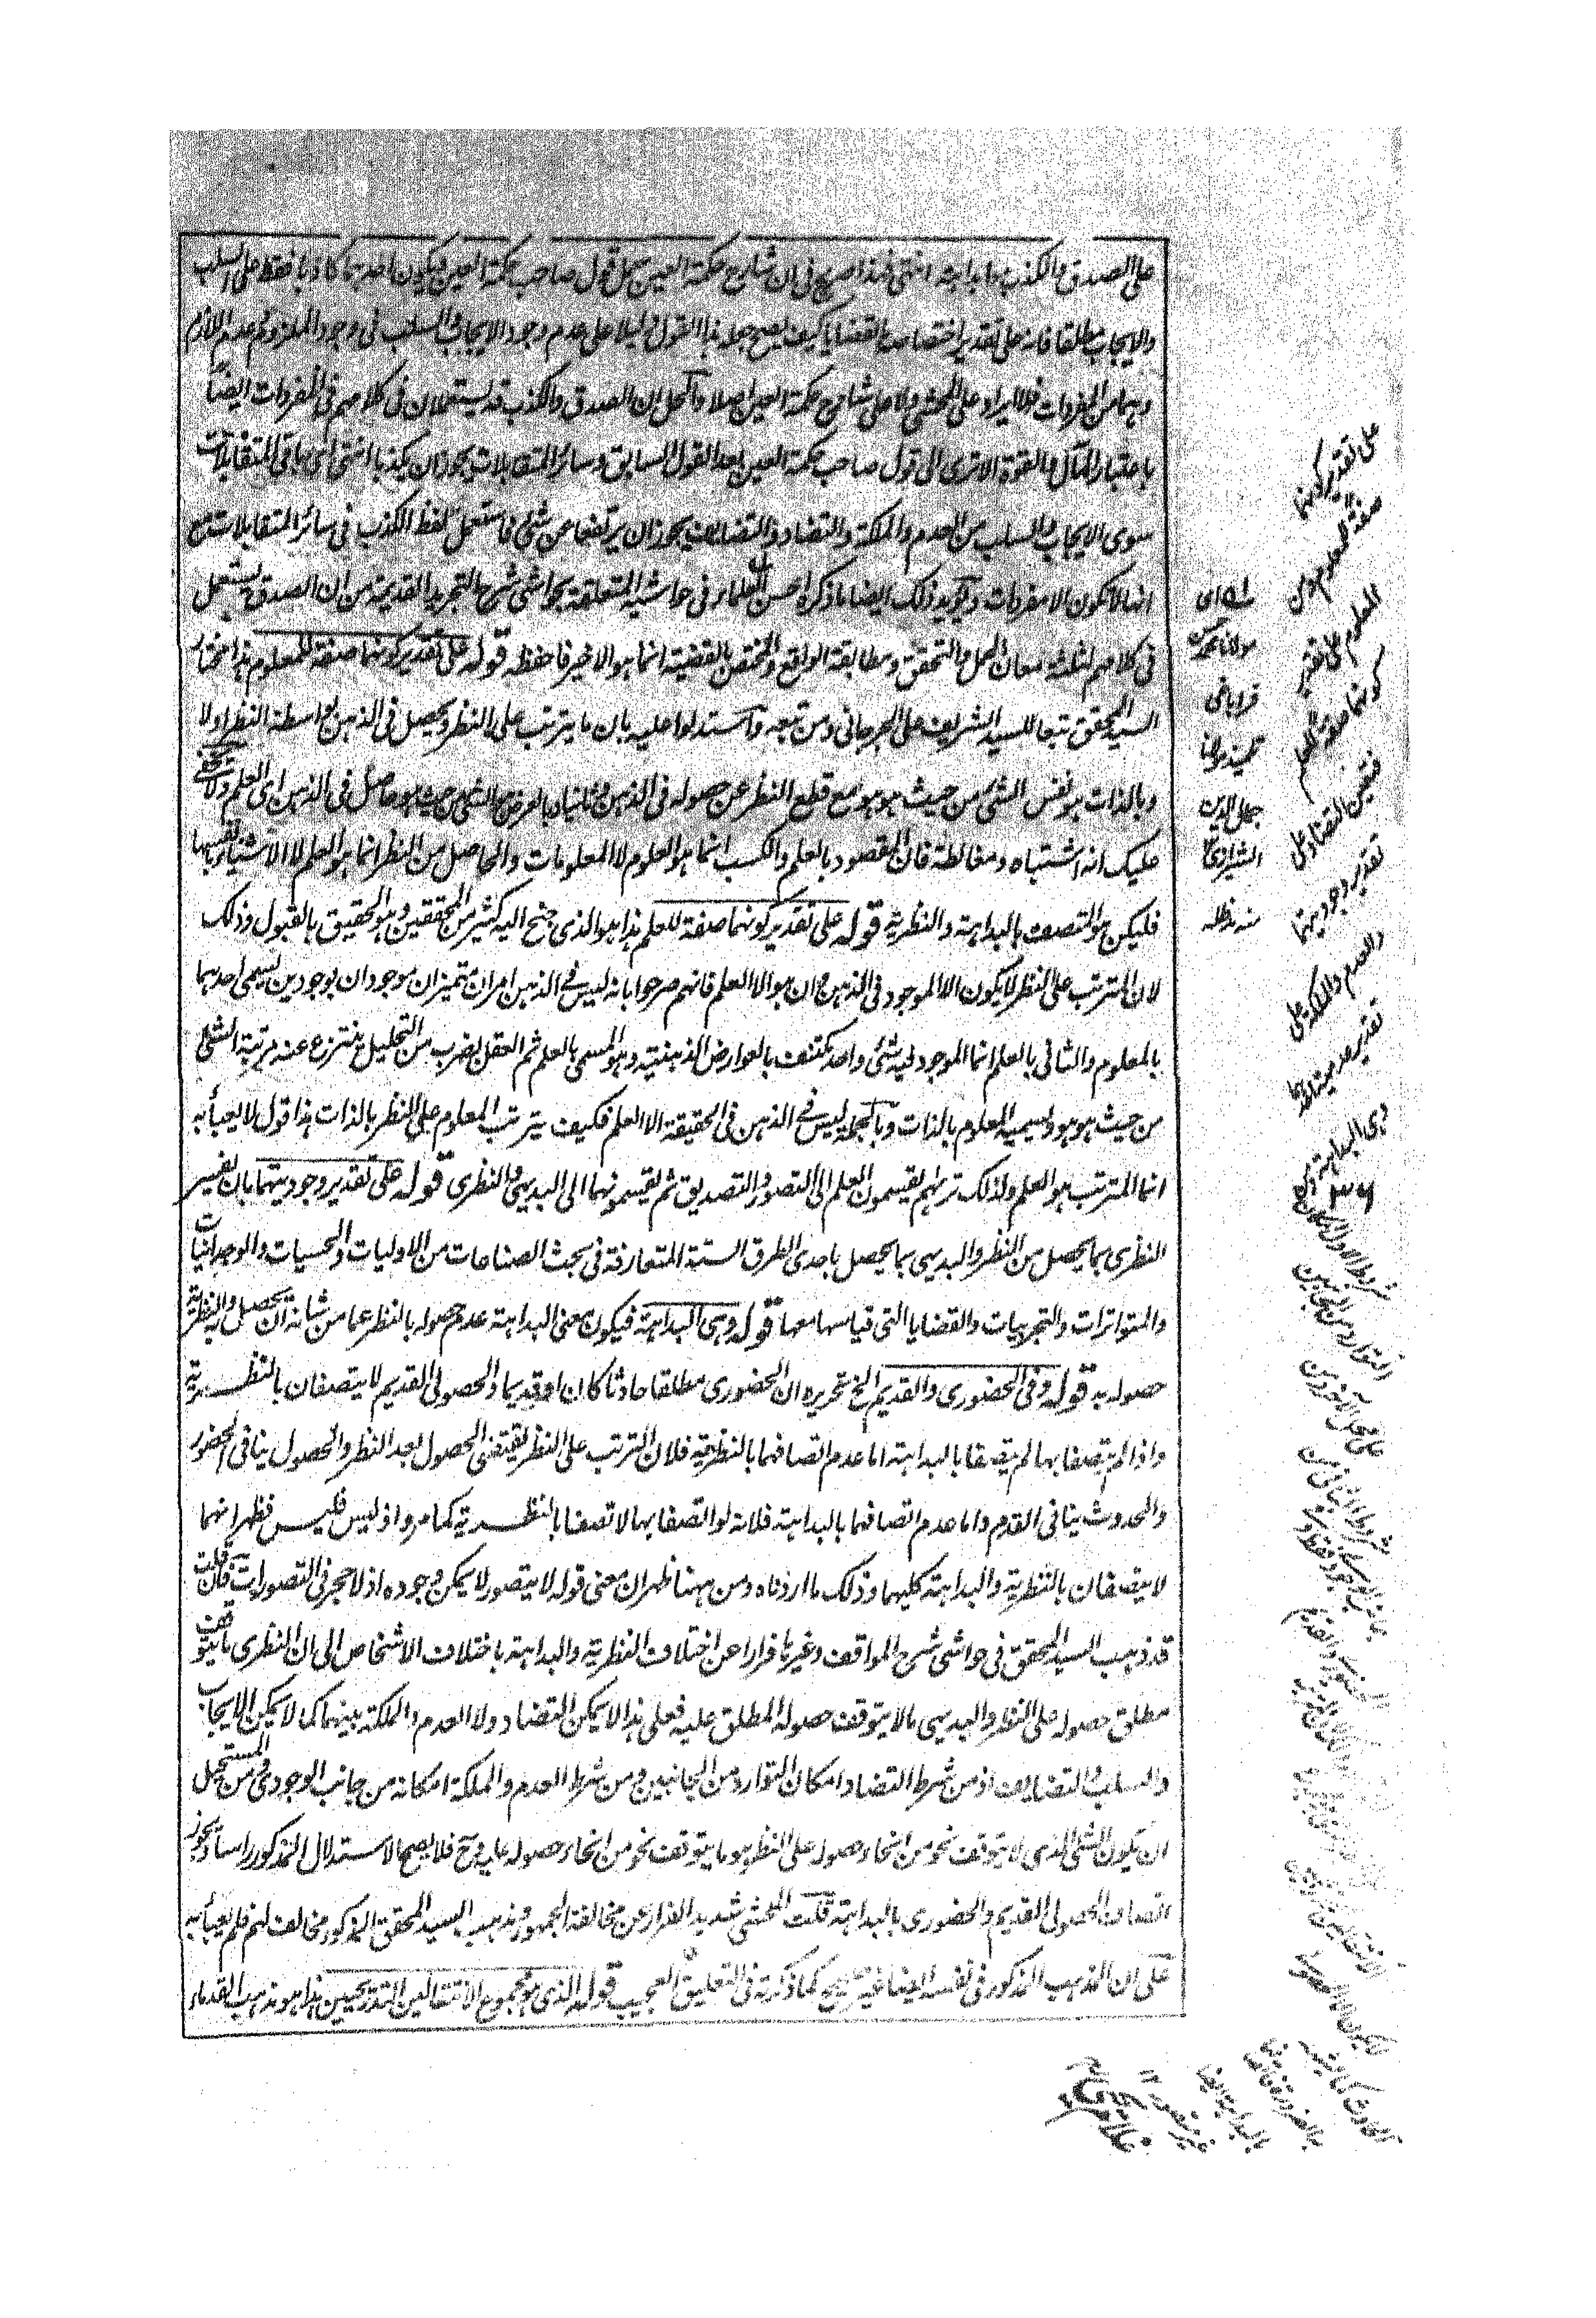 على الصدق والكذب بداهة انتهى فهذا صريح فى ان شارح حكمة العين حمل قول صاحب حكمة العين فيكون احدهما كاذبا فقط على السلب
والايجاب مطلقا فانه على تقدير اختصاصه بالقضايا كيف يصح جعل هذا القول دليلا على عدم وجود الايجاب والسلب فى وجود الملزوم وعدم اللازم
وهما من المفردات فلا ايراد على المحشى ولا على شارح حكمة العين اصلا والحل ان الصدق والكذب قد يستعملان فى كلامهم فى المفردات ايضاً
باعتبار المآل والقوة الا ترى الى قول صاحب حكمة العين بعد القول السابق وسائر المتقابلات يجوز ان يكذبا انتهى اى باقى المتقابلات
سوى الايجاب والسلب من العدم والملكة والتضاد والتضايف يجوز ان يرتفعا عن شئ فاستعمل لفظ الكذب فى سائر المتقابلات مع
انها لا تكون الا مفردات ويؤيد ذلك ايضا ما ذكره احسن العلماء فى حاشيته المتعلقة بحواشى شرح التجريد القديمة من ان الصدق يستعمل
فى كلامهم لثلاثة معان الحمل والتحقق ومطابقة الواقع والمختص بالقضية انما هو الاخير فاحفظه قوله على تقدير كونهما صفة للمعلوم هذا مختار
السيد المحقق تبعا للسيد الشريف على الجرجانى ومن تبعه واستدلوا عليه بان ما يترتب على النظر ويحصل فى الذهن بواسطة النظر اولا
وبالذات هو نفس الشئ من حيث هو هو مع قطع النظر عن حصوله فى الذهن وثانيا بالعرض الشئ من حيث هو حاصل فى الذهن اى العلم ولا يخفى
عليك انه اشتباه ومغالطة فان المقصود بالعلم والكسب انما هو العلوم لا المعلومات والحاصل من النظر انما هو العلم لا الاشياء بانفسها
فليكن هو المتصف بالبداهة والنظرية قوله على تقدير كونهما صفة للعلم هذا هو الذى جنح اليه كثير من المحققين وهو الحقيق بالقبول وذلك
لان المترتب على النظر لا يكون الا الموجود فى الذهن وان هو الا العلم فانهم صرحوا بانه ليس فى الذهن امران متميزان موجودان بوجودين يسمى احدهما
بالمعلوم والثانى بالعلم انما الموجود فيه شئ واحد مكتنف بالعوارض الذهنية وهو المسمى بالعلم ثم العقل بضرب من التحليل ينتزع عنه مرتبة الشئ
من حيث هو هو ويسميه المعلوم بالذات وبالجملة ليس فى الذهن فى الحقيقة الا العلم فكيف يترتب المعلوم على النظر بالذات هذا قول لا يعبأ به
انما المترتب هو العلم ولذلك تريهم يقسمون العلم الى التصور والتصديق ثم يقسمونهما الى البديهى والنظرى قوله على تقدير وجوديتهما بان يفسر
النظرى بما يحصل من النظر والبديهى بما يحصل باحدى الطرق الستة المتعارفة فى بحث الصناعات من الاوليات والحسيات والوجدانيات
والمتواترات والتجربيات والقضايا التى قياسها معها قوله وهى البداهة فيكون معنى البداهة عدم حصوله بالنظر عما من شانه ان يحصل به والنظرية
حصوله به قوله وفى الحضورى والقديم الخ تحريره ان الحضورى مطلقا حادثا كان او قديما والحصولى القديم لا يتصفان بالنظرية
واذا لم يتصفا بها لم يتصفا بالبداهة اما عدم اتصافهما بالنظرية فلان الترتب على النظر يقتضى الحصول بعد النظر والحصول ينافى الحضور
والحدوث ينافى القدم واما عدم اتصافهما بالبداهة فلانه لو اتصفا بها لاتصفا بالنظرية كما مر واذ ليس فليس فظهر انهما
لا يتصفان بالنظرية والبداهة كليهما وذلك ما اردناه ومن ههنا ظهر ان معنى قوله لا يتصور لا يمكن وجوده اذ لا حجر فى التصورات فان قلت
قد ذهب السيد المحقق فى حواشى شرح المواقف وغيرها فرارا عن اختلاف النظرية والبداهة باختلاف الاشخاص الى ان النظرى ما يتوقف
مطلق حصوله على النظر والبديهى ما لا يتوقف حصوله المطلق عليه فعلى هذا لا يمكن التضاد ولا العدم والملكة بينهما كما لا يمكن الايجاب
والسلب والتضايف اذ من شرط التضاد امكان التوارد من الجانبين ومن شرط العدم والملكة امكانه من جانب الوجودى ومن المستحيل
ان يكون الشئ الذى لا يتوقف نحو من انحاء حصوله على النظر هو ما يتوقف نحو من انحاء حصوله عليه وح فلا يصح الاستدلال المذكور راسا ويجوز
اتصاف الحصولى القديم والحضورى بالبداهة قلت المحشى شديد الفرار عن مخالفة الجمهور ومذهب السيد المحقق المذكور مخالف لهم فلم يعبأ به
على ان المذهب المذكور فى نفسه ايضا غير صحيح كما ذكرته فى التعليق العجيب قوله الذى هو مجموع الانتقالين التدريجيين هذا هو مذهب القدماء
اى
مولانا محمد حسن
قراباغى
تلميذ مولانا
جمال الدين
الشيرازى
منه مدظله
على تقدير كونهما
صفة المعلوم
كونهما صفة العلم
فتعين التضاد على
تقدير وجوديتهما
والعدم والملكة على